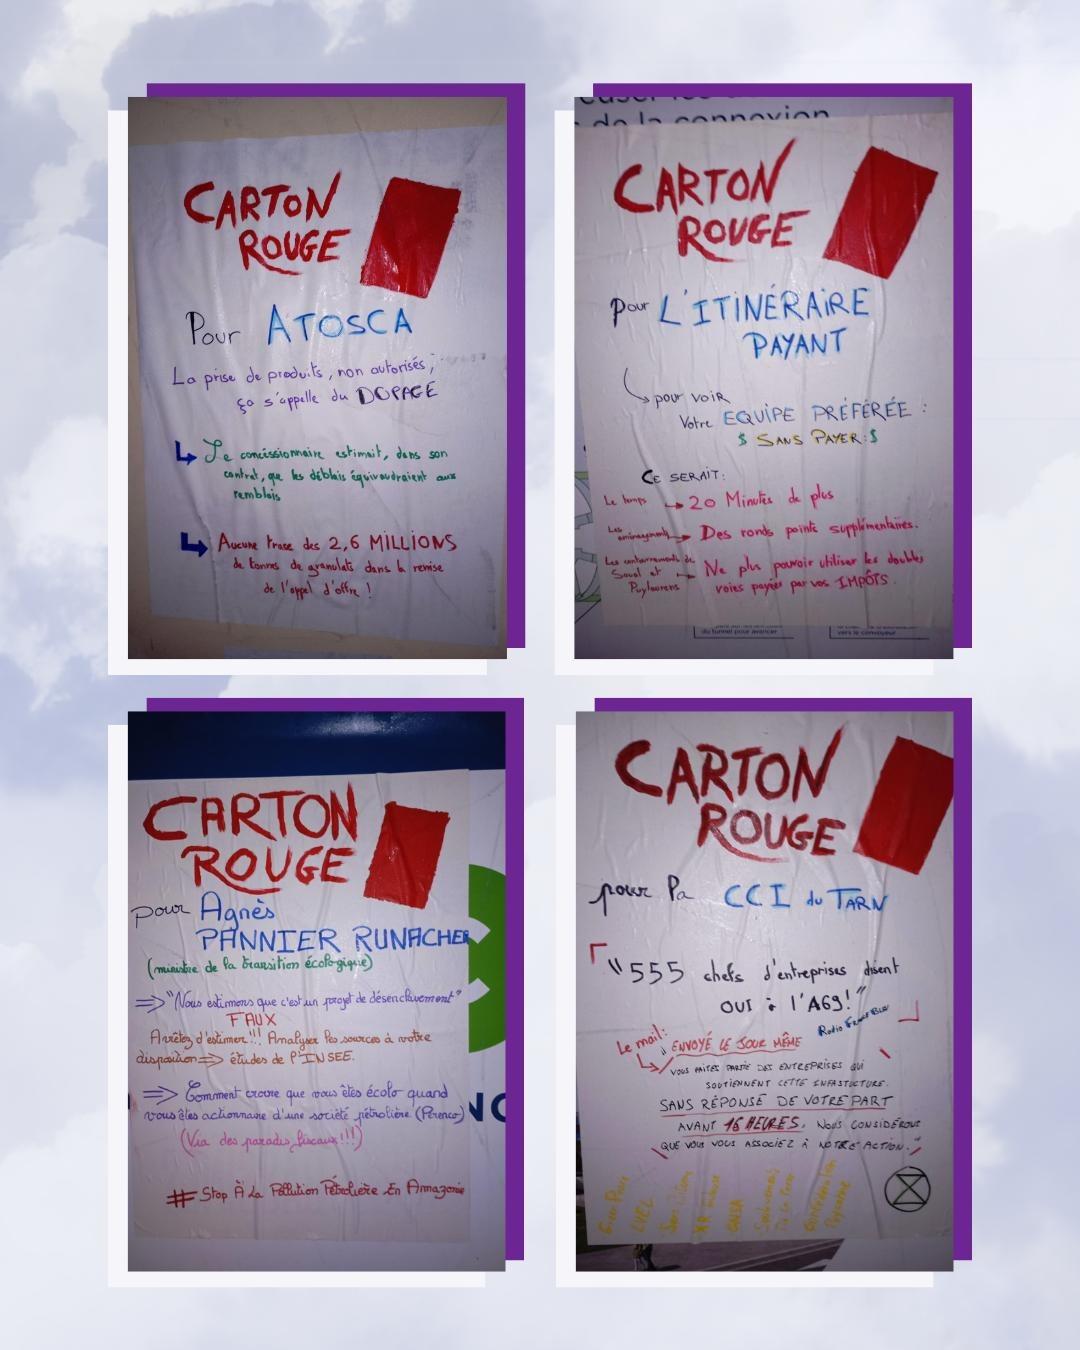 CARTON
ROUGE
Pour ATOSCA
La prise de produits, non autorisés,
ça s'appelle du DOPAGE
Le concessionnaire estimait, dans son
contrat, que les déblais équivaudraient aux
remblais
Aucune trace des 2,6 MILLIONS
de tonnes de granulats dans la remise
de l'appel d'offre !
de la connexion
CARTON
ROUGE
pour L'ITINÉRAIRE
PAYANT
pour voir
Votre EQUIPE PRÉFÉRÉE :
$ SANS PAYER :$
CE SERAIT:
Le temps → 20 Minutes de plus
Les aménagements → Des ronds points supplémentaires.
Les contournements de
Soual et
Puylaurens → Ne plus pouvoir utiliser les doubles
voies payées par vos IMPÔTS.
du tunnel pour avancer
vers le convoyeur
CARTON
ROUGE
pour Agnès
PANNIER RUNACHER
(ministre de la transition écologique)
⇒ "Nous estimons que c'est un projet de désenclavement"
FAUX
Arrêtez d'estimer!!! Analyser les sources à votre
disposition ⇒ études de l'INSEE.
⇒ Comment croire que vous êtes écolo quand
vous êtes actionnaire d'une société pétrolière (Perenco)
(Via des paradis fiscaux!!!)
# Stop À La Pollution Pétrolière En Amazonie
CARTON
ROUGE
pour la CCI du TARN
"555 chefs d'entreprises disent
OUI à l'A69!"
Radio France Bleu
Le mail:
ENVOYÉ LE JOUR MÊME
VOUS FAITES PARTIE DES ENTREPRISES QUI
SOUTIENNENT CETTE INFASTUCTURE.
SANS RÉPONSE DE VOTRE PART
AVANT 16 HEURES, NOUS CONSIDÉRONS
QUE VOUS VOUS ASSOCIEZ À NOTRE ACTION."
LVEL
XR
GNSA
Soulèvements
De La Terre
Confédération
Paysanne